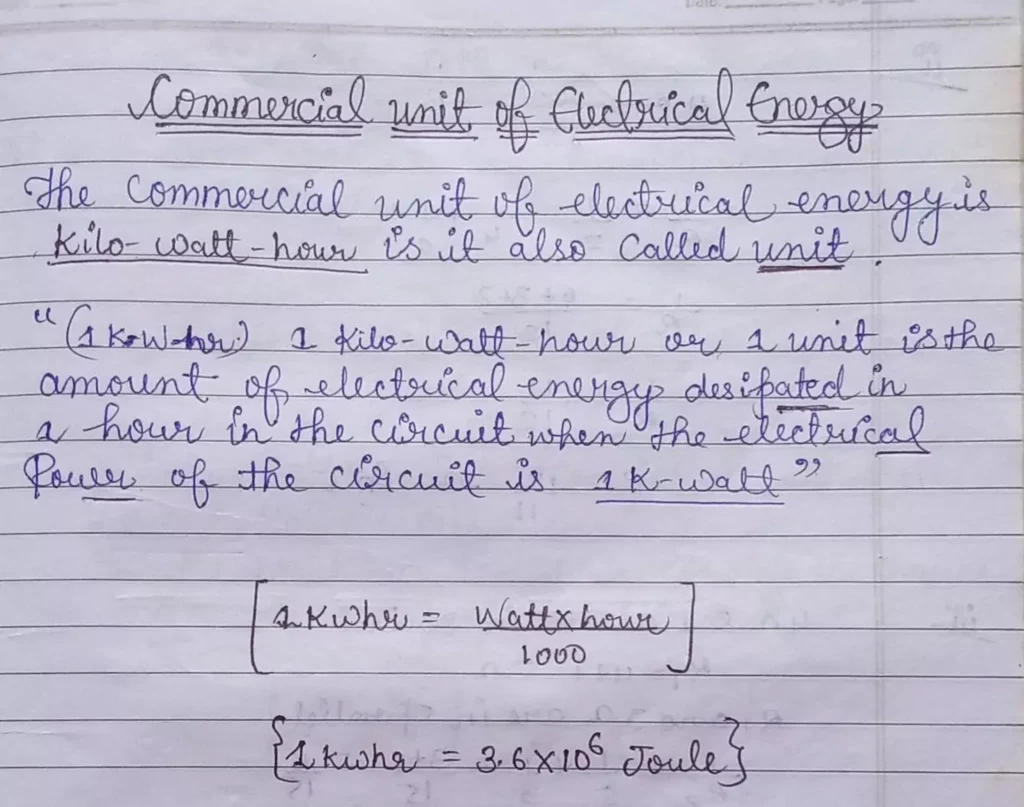 Commercial unit of Electrical Energy
The Commercial unit of electrical energy is
Kilo-watt-hour is it also Called unit.
"(1 K-W-hr) 1 Kilo-watt-hour or 1 unit is the
amount of electrical energy desipated in
1 hour in the circuit when the electrical
Power of the circuit is 1 K-watt"
[1 Kwhr = Watt x hour
1000]
{1 kwhr = 3.6 X 10⁶ Joule}